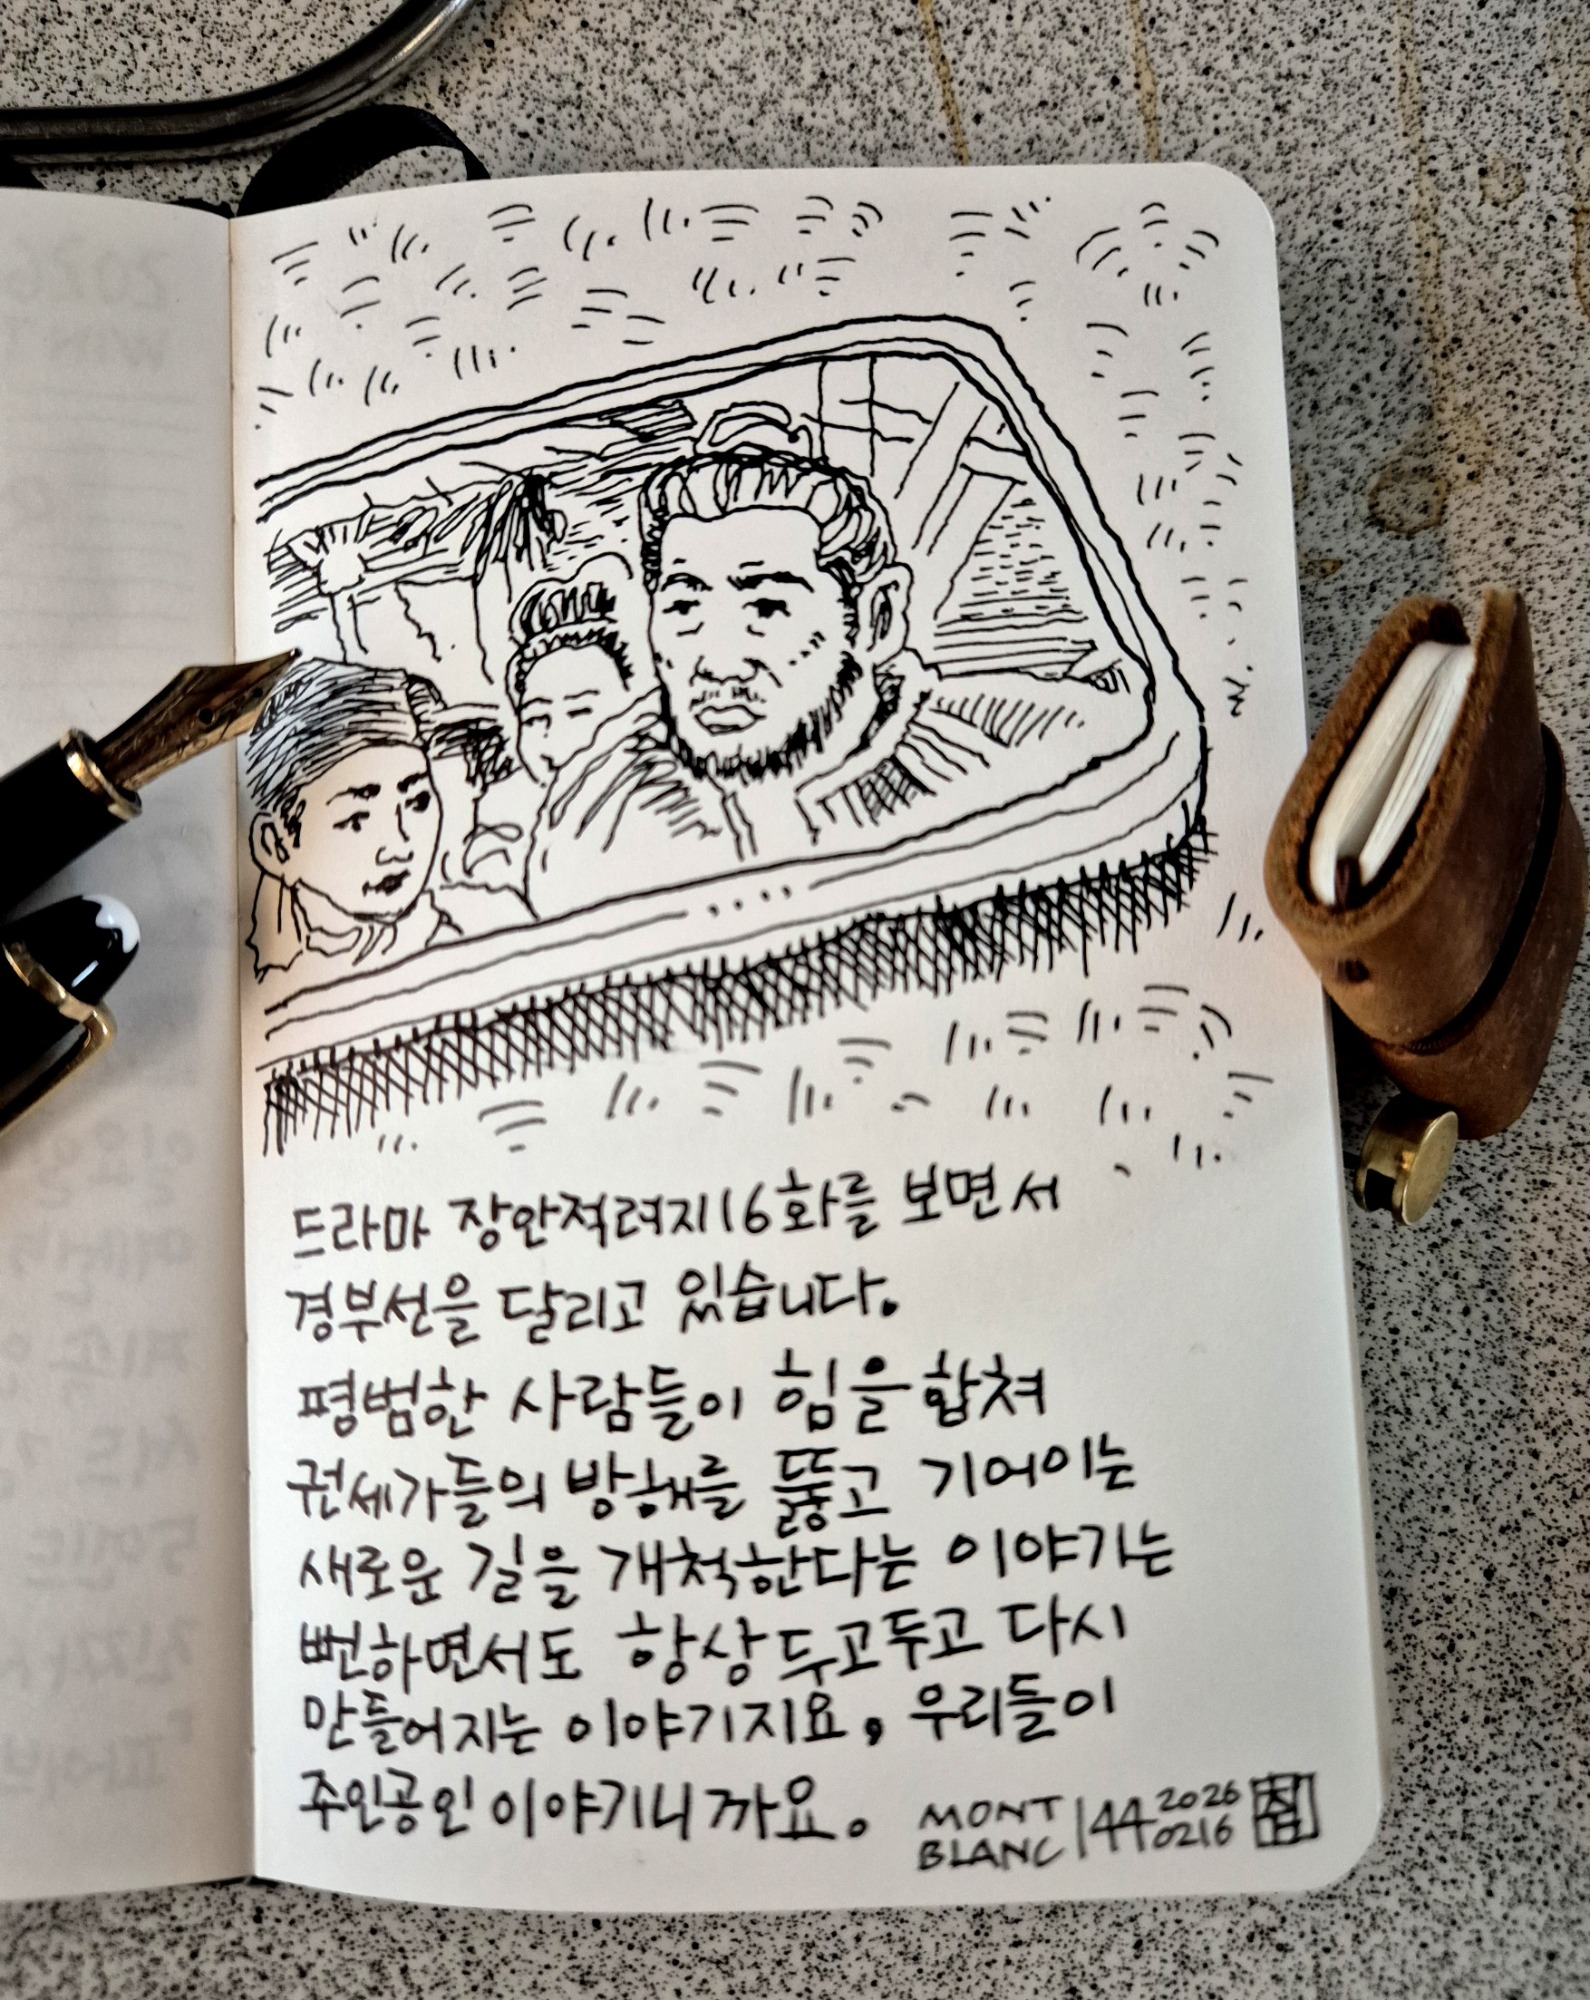 드라마 장안적려지16화를 보면서
경부선을 달리고 있습니다.
평범한 사람들이 힘을 합쳐
권세가들의 방해를 뚫고 기어이는
새로운 길을 개척한다는 이야기는
뻔하면서도 항상 두고두고 다시
만들어지는 이야기지요, 우리들이
주인공인 이야기니까요.
MONT BLANC 144 2026 0216